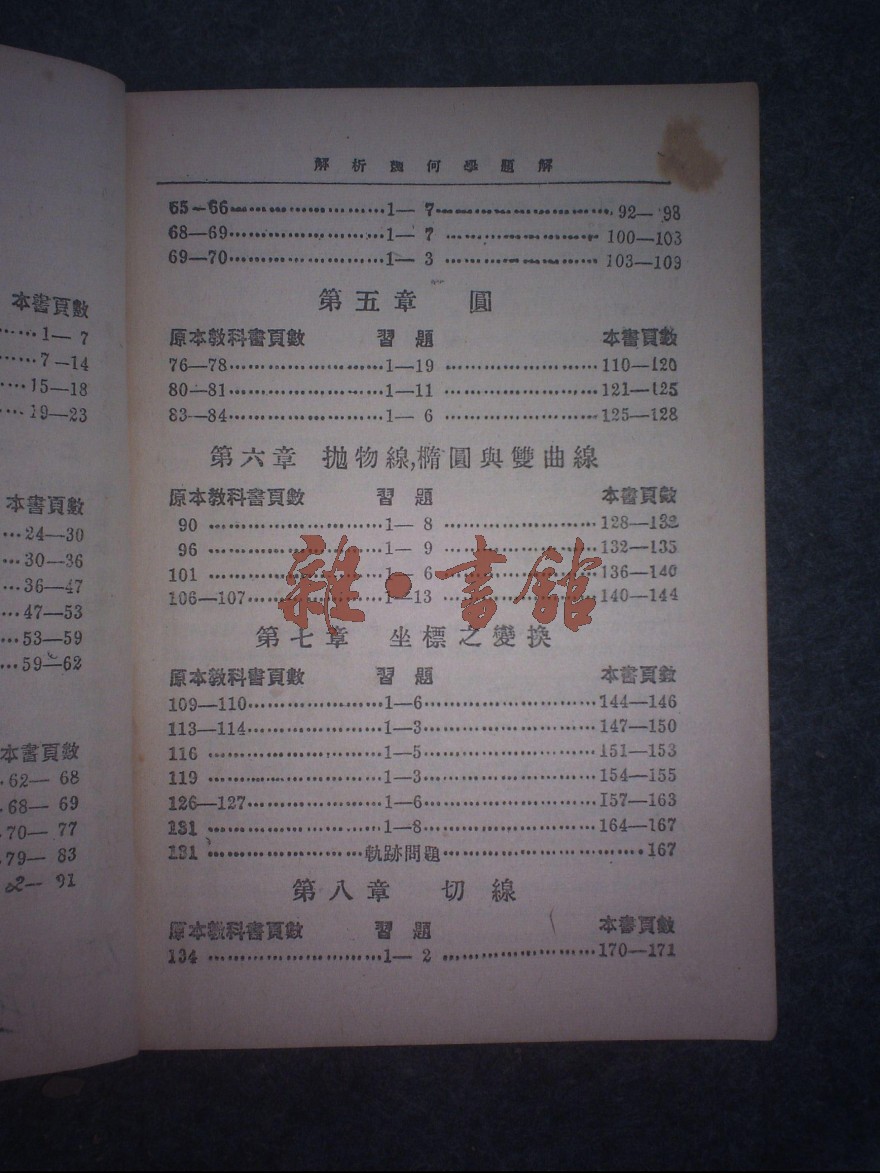 本書頁數
……1— 7
……7—14
……15—18
……19—23
本書頁數
……24—30
……30—36
……36—47
……47—53
……53—59
……59—62
本書頁數
62— 68
68— 69
70— 77
79— 83
91
解析幾何學題解
65—66……………………1— 7……………………92— 98
68—69……………………1— 7……………………100—103
69—70……………………1— 3……………………103—109
第五章 圓
原本教科書頁數 習題 本書頁數
76—78……………………1—19……………………110—120
80—81……………………1—11……………………121—125
83—84……………………1— 6……………………125—128
第六章 拋物線,橢圓與雙曲線
原本教科書頁數 習題 本書頁數
90……………………1— 8……………………128—132
96……………………1— 9……………………132—135
101……………………1— 6……………………136—140
106—107……………………1—13……………………140—144
雜·書館
第七章 坐標之變換
原本教科書頁數 習題 本書頁數
109—110……………………1—6……………………144—146
113—114……………………1—3……………………147—150
116……………………1—5……………………151—153
119……………………1—3……………………154—155
126—127……………………1—6……………………157—163
131……………………1—8……………………164—167
131……………………軌跡問題……………………167
第八章 切線
原本教科書頁數 習題 本書頁數
134……………………1— 2……………………170—171